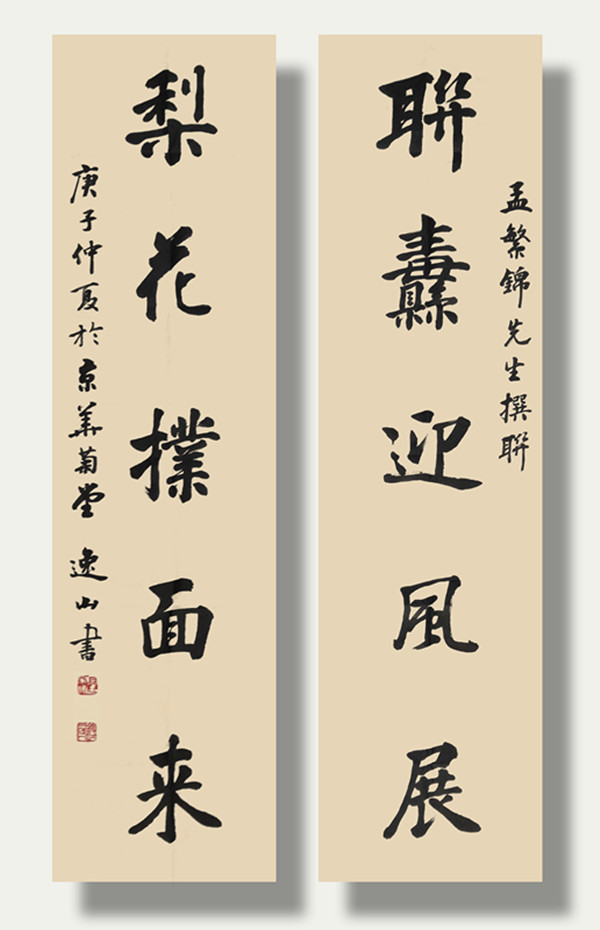 孟繁錦先生撰聯
聯纛迎風展
梨花撲面来
庚子仲夏於京華菊堂 逸山書